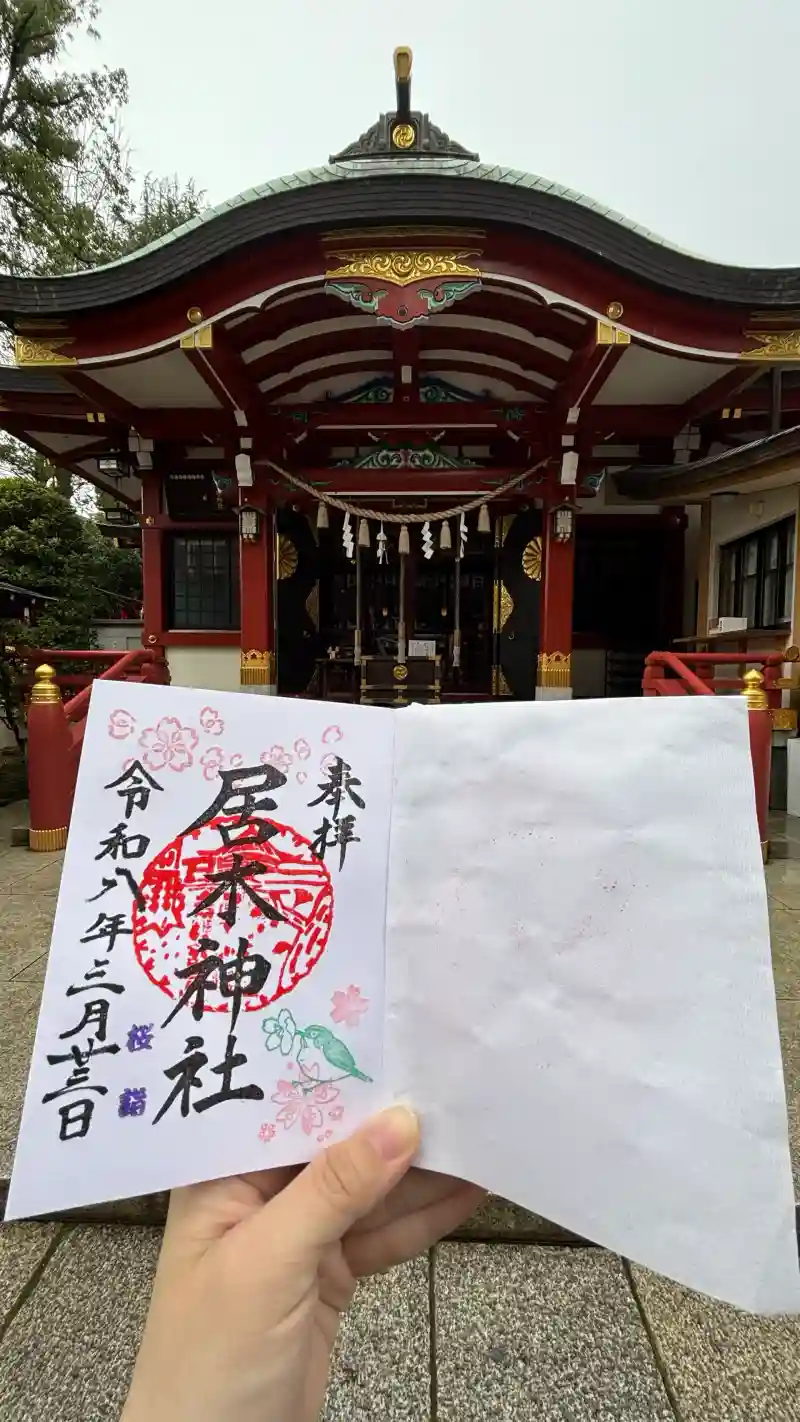 奉拝
居木神社
桜詣
令和八年三月廿三日